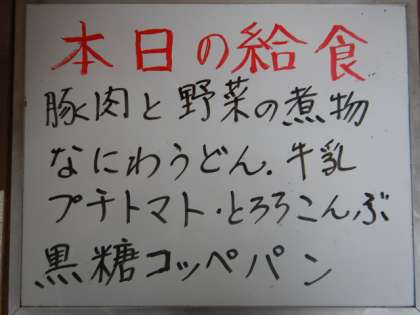 本日の給食
豚肉と野菜の煮物
なにわうどん.牛乳
プチトマト・とろろこんぶ
黒糖コッペパン